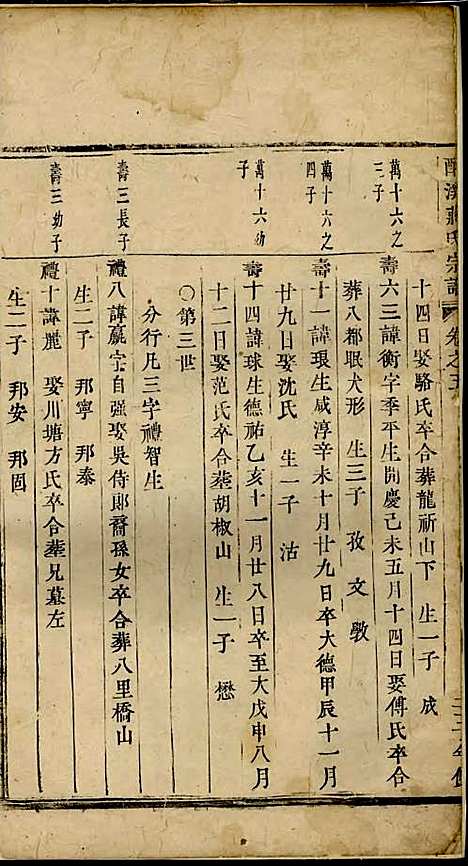 莊氏宗譜 卷之五
十四日娶駱氏卒合葬龍祈山下 生一子 成
萬十六之三子
壽六三諱衡字季平生開慶己未五月十四日娶傅氏卒合
葬八都眠犬形 生三子 孜 文 斆
萬十六之四子
壽十一諱琅生咸淳辛未十月廿九日卒大德甲辰十一月
廿九日娶沈氏 生一子 沽
萬十六幼子
壽十四諱球生德祐乙亥十一月廿八日卒至大戊申八月
十二日娶范氏卒合葬胡椒山 生一子 懋
○第三世
分行凡三字禮智生
壽三長子
禮八諱贏字自强娶吳侍郎裔孫女卒合葬八里橋山
生二子 邦寧 邦泰
壽三幼子
禮十諱麗 娶川塘方氏卒合葬兄墓左
生二子 邦安 邦固